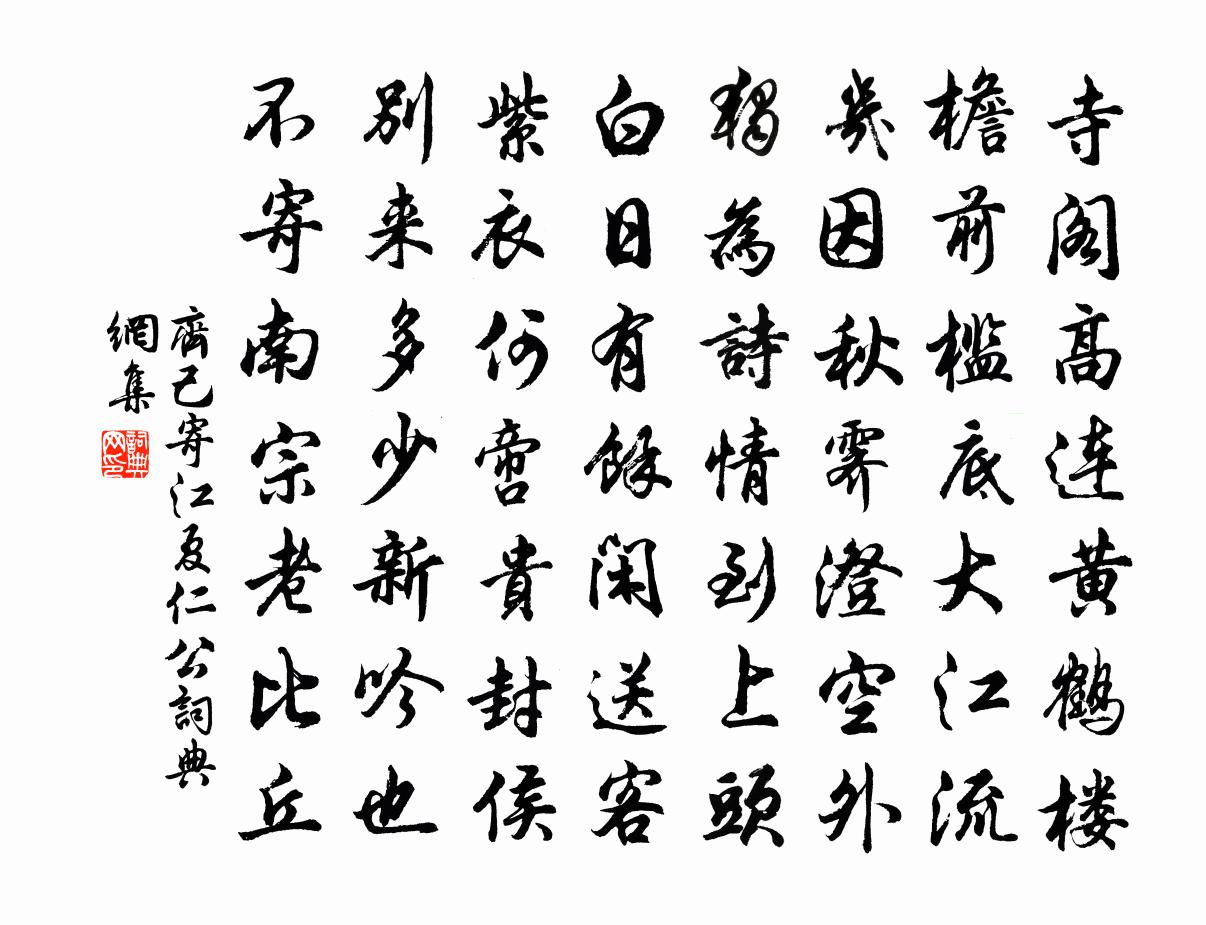 寺阁高连黄鹤楼
檐前槛底大江流
幾因秋霁澄空外
獨為詩情到上頭
白日有餘闲送客
紫衣何啻貴封侯
别来多少新吟也
不寄南宗老比丘
齊己寄江夏仁公詞典
網集
詞典网印